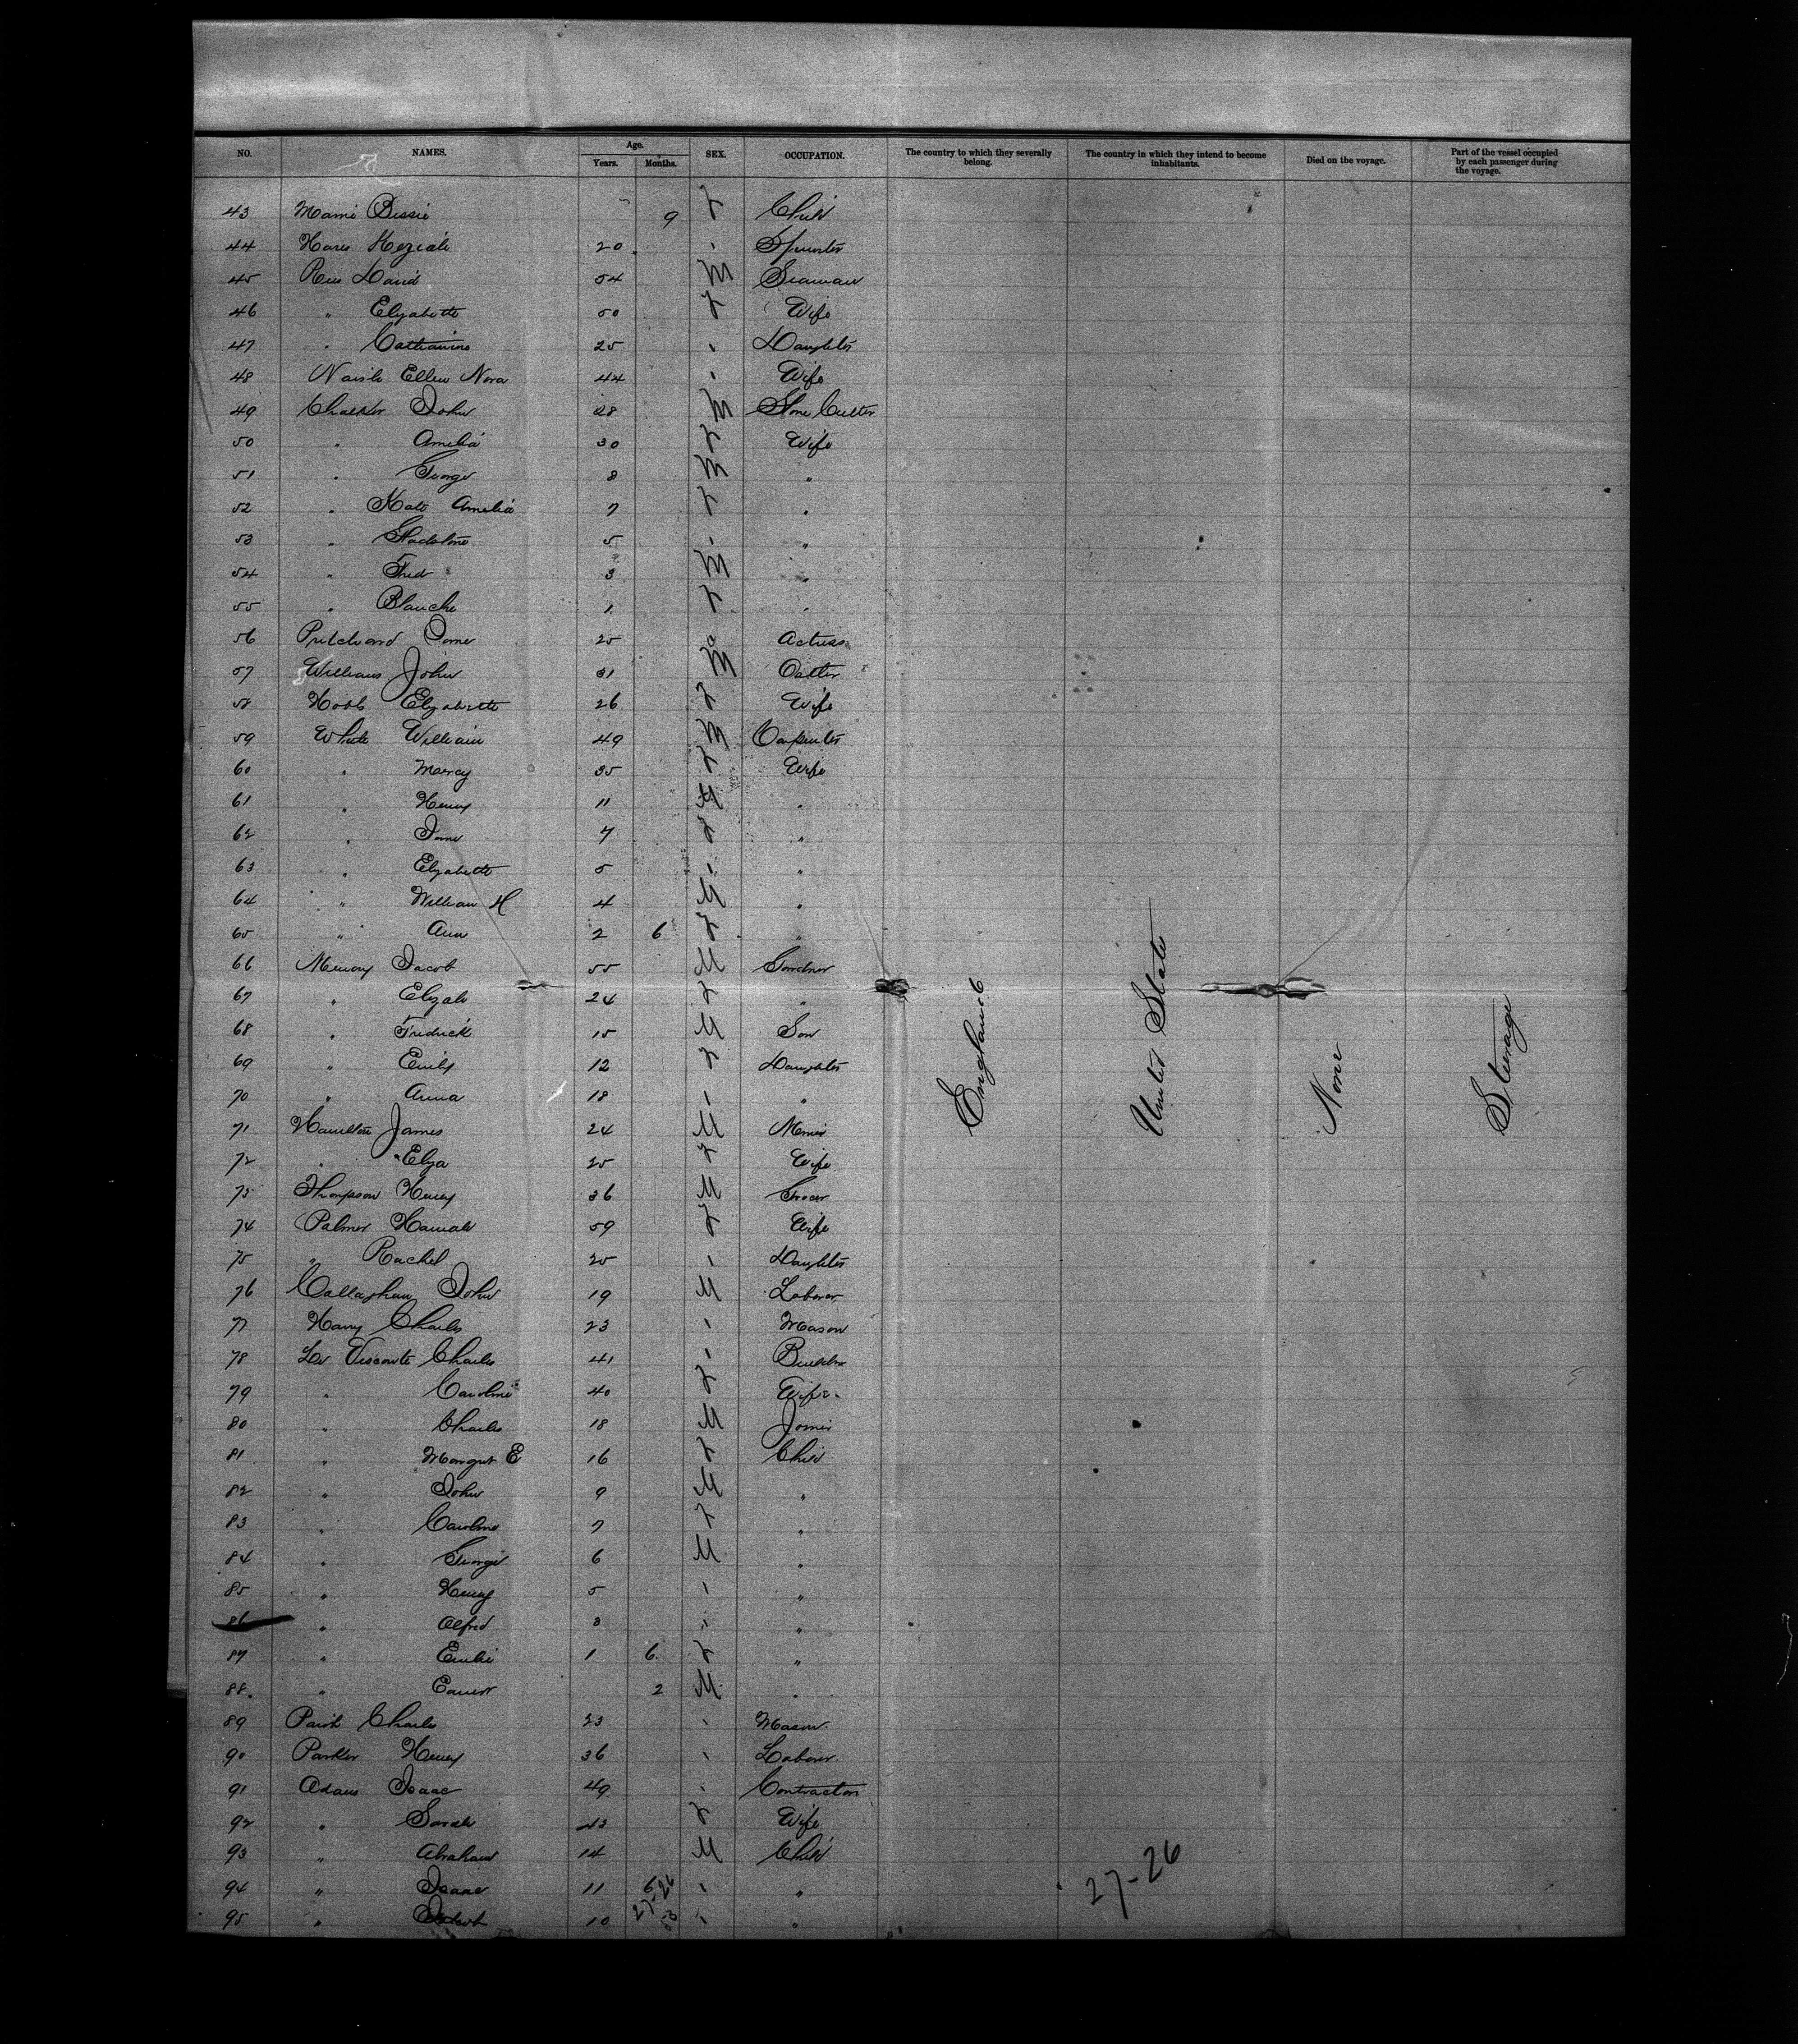 NO. NAMES. Age. Years. Months. SEX. OCCUPATION. The country to which they severally belong. The country in which they intend to become inhabitants. Died on the voyage. Part of the vessel occupied by each passenger during the voyage.
43 Bessie 9 F Child
44 Keziah 20 " Spinster
45 Rees David 54 M Seaman
46 " Elizabeth 50 F Wife
47 " Catharine 25 " Daughter
48 Ellen Nora 44 " Wife
49 John 28 M Stone Cutter
50 " Amelia 30 F Wife
51 " George 8 M "
52 " Kate Amelia 7 F "
53 " Gladstone 5 " "
54 " Fred 3 M "
55 " Blanche 1 F "
56 Pritchard Jane 25 Actress
57 Williams John 31 M
58 Elizabeth 26 F Wife
59 White William 49 M Carpenter
60 " Mercy 35 F Wife
61 " Henry 11 M "
62 " Jane 7 F "
63 " Elizabeth 5 " "
64 " William H 4 M "
65 " Ann 2 6 F "
66 Jacob 55 M Gardner
67 " Elizah 24 F "
68 " Fredrick 15 M Son
69 " Emily 12 F Daughter
70 " Anna 18 " "
71 Hamilton James 24 M
72 " Eliza 25 F Wife
73 Thompson Henry 36 M Grocer
74 Palmer Hannah 59 F Wife
75 " Rachel 25 " Daughter
76 Callaghan John 19 M Laborer
77 Charles 23 " Mason
78 Le Visconte Charles 41 " Builder
79 " Caroline 40 F Wife
80 " Charles 18 M Joiner
81 " Margret E 16 F Child
82 " John 9 M "
83 " Caroline 7 F "
84 " George 6 M "
85 " Henry 5 " "
86 " Alfred 3 " "
87 " Emilie 1 6 F "
88 " Ernest 2 M "
89 Charles 23 " Mason
90 Parker Henry 36 " Laborer
91 Adams Isaac 49 " Contractor
92 " Sarah 43 F Wife
93 " Abraham 14 M Child
94 " Isaac 11 6 " "
95 " 10 " "
England
United State
None
Steerage
27-26
27-26